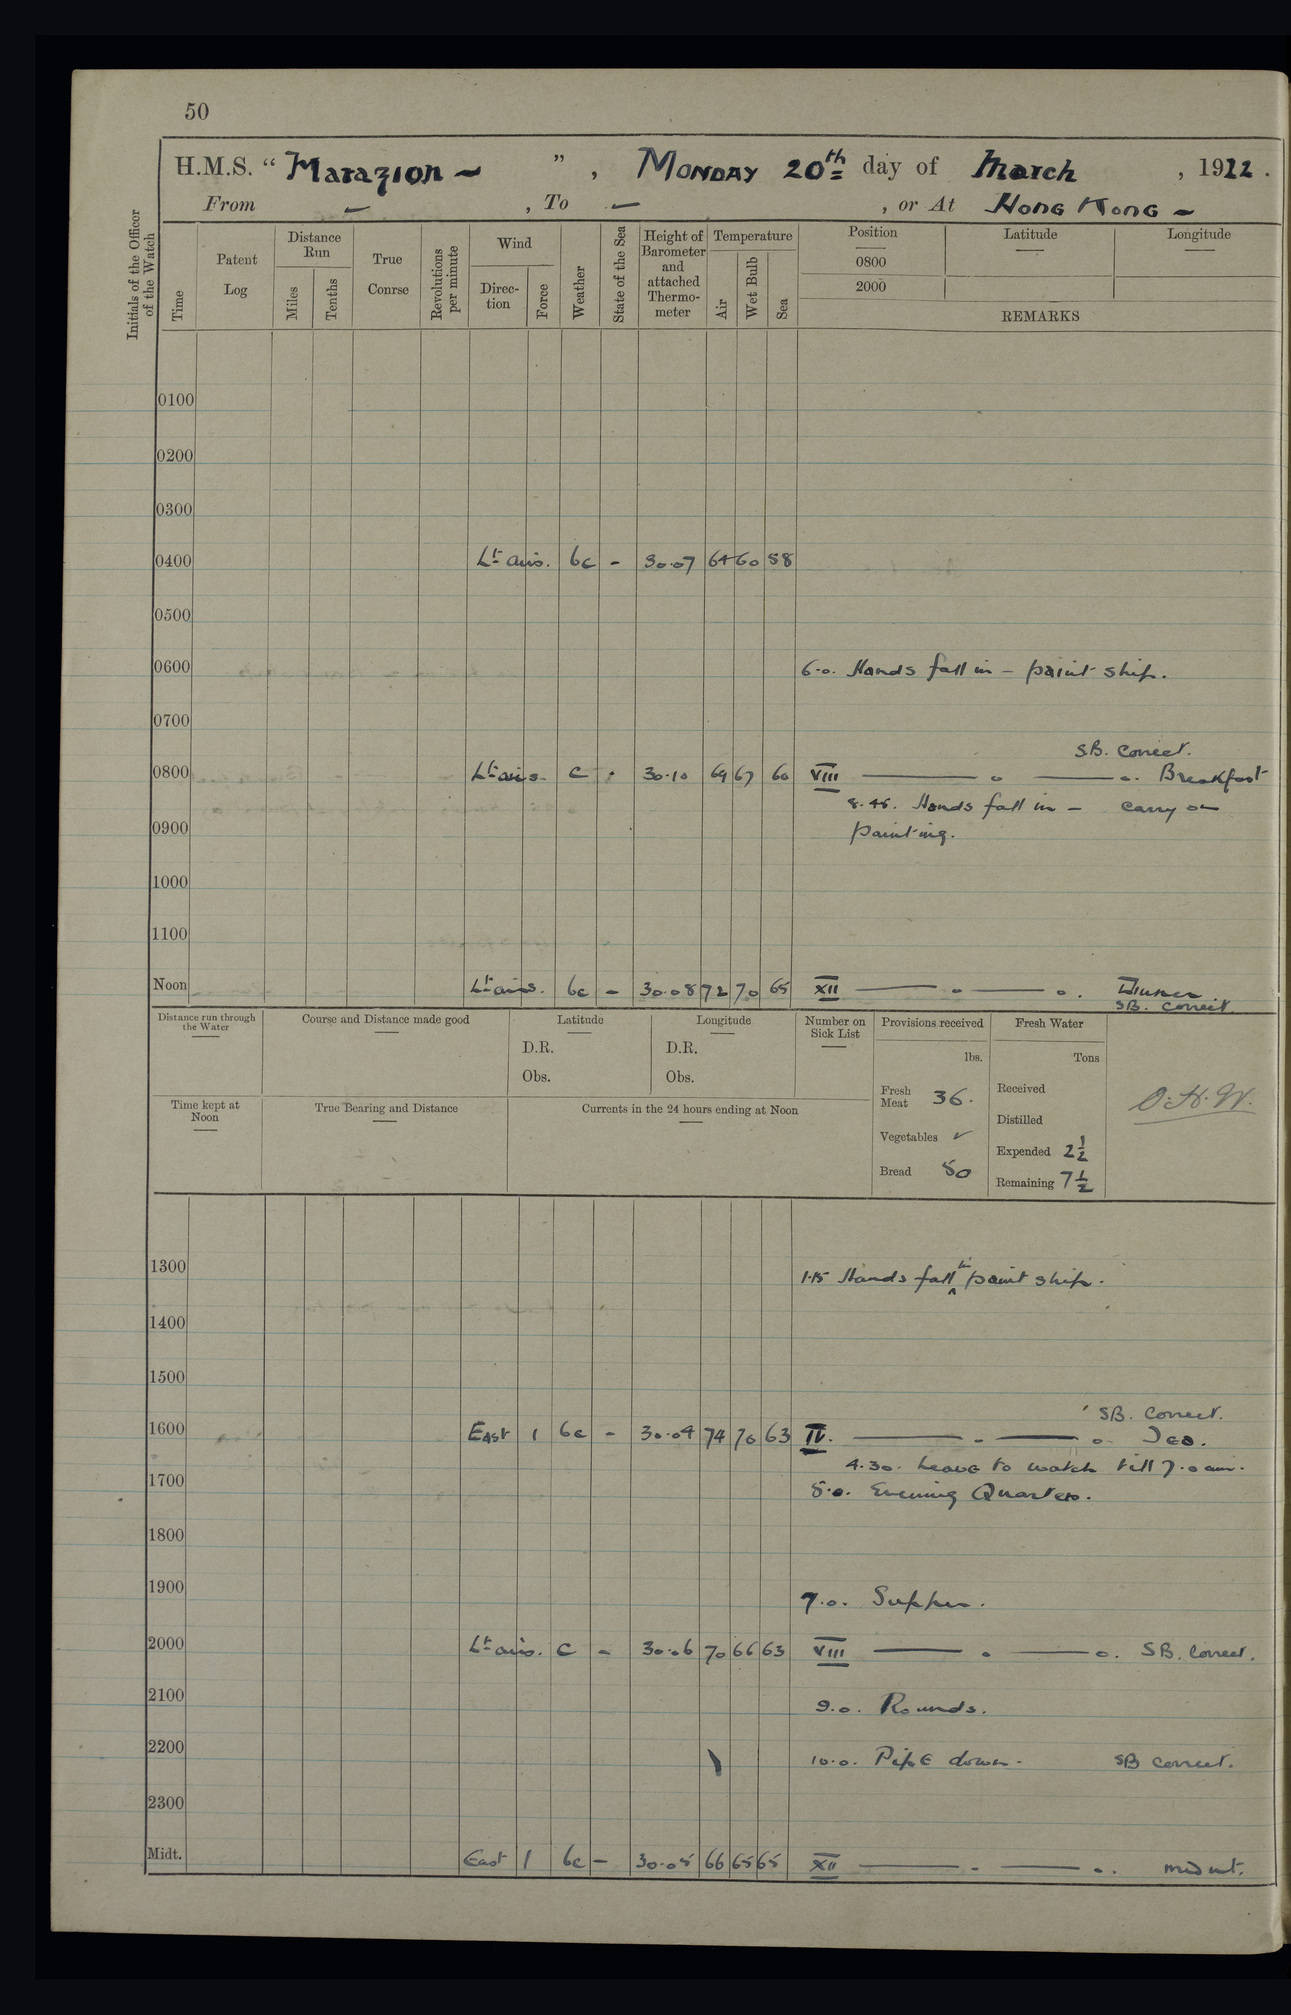 50
H.M.S. “ Marazion – ” , Monday 20th day of March , 1922 .
From – , To – , or At Hong Kong –
Initials of the Officer of the Watch
Time
Patent Log
Distance Run
Miles
Tenths
True Conrse
Revolutions per minute
Wind
Direction
Force
Weather
State of the Sea
Height of Barometer and attached Thermometer
Temperature
Air
Wet Bulb
Sea
Position Latitude Longitude
0800
2000
REMARKS
0100
0200
0300
0400 Lt airs. bc - 30.07 64 60 58
0500
0600 6.0. Hands fall in – paint ship.
0700
SB. Correct.
0800 Lt airs. c . 30.10 69 67 60 VIII ——— o ——— o. Breakfast
8.45. Hands fall in – carry on
0900 painting.
1000
1100
Noon Lt airs. bc - 30.08 72 70 65 XII ——— o ——— o. Dinner
SB. Correct
Distance run through the Water
Course and Distance made good
Latitude
D.R.
Obs.
Longitude
D.R.
Obs.
Number on Sick List
Provisions received
lbs.
Fresh Meat 36.
Vegetables ✓
Bread 50
Fresh Water
Tons
Received
Distilled
Expended 2½
Remaining 7½
O.H.W.
Time kept at Noon
True Bearing and Distance
Currents in the 24 hours ending at Noon
1300 1.15 Hands fall in paint ship.
1400
1500
SB. Correct.
1600 East 1 bc - 30.04 74 70 63 IV. ——— o ——— o Tea.
4.30. Leave to watch till 7.0 am.
1700 5.0. Evening Quarters.
1800
1900 7.0. Supper.
2000 Lt airs. c - 30.06 70 66 63 VIII ——— o ——— o. SB. Correct.
2100 9.0. Rounds.
2200 10.0. Pipe down. SB correct.
2300
Midt. East 1 bc – 30.05 66 65 65 XII ——— o ——— o. midnt.